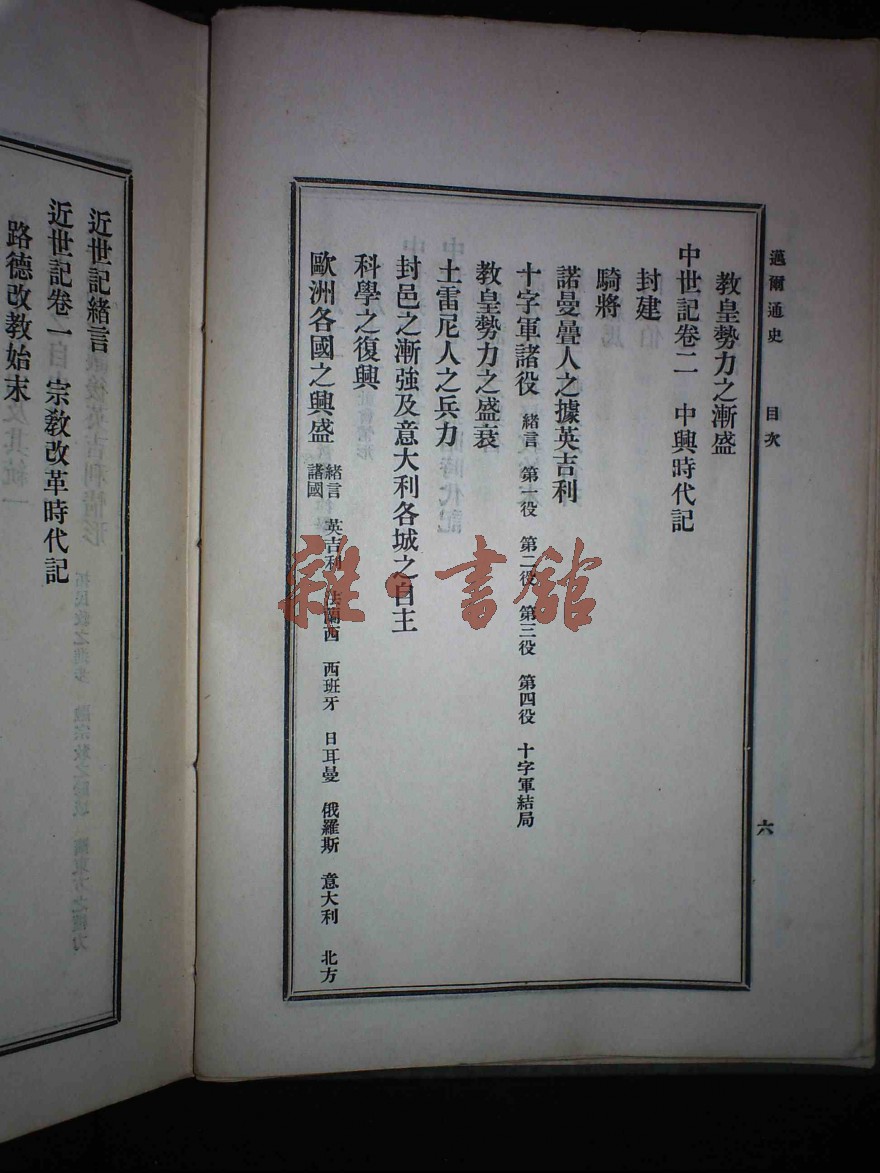 邁爾通史　目次　六
教皇勢力之漸盛
中世記卷二　中興時代記
封建
騎將
諾曼曡人之據英吉利
十字軍諸役　緒言　第一役　第二役　第三役　第四役　十字軍結局
教皇勢力之盛衰
土雷尼人之兵力
封邑之漸強及意大利各城之自主
科學之復興
歐洲各國之興盛　緒言　英吉利　法蘭西　西班牙　日耳曼　俄羅斯　意大利　北方
諸國
近世記緒言
近世記卷一　宗教改革時代記
路德改教始末
雜·書館